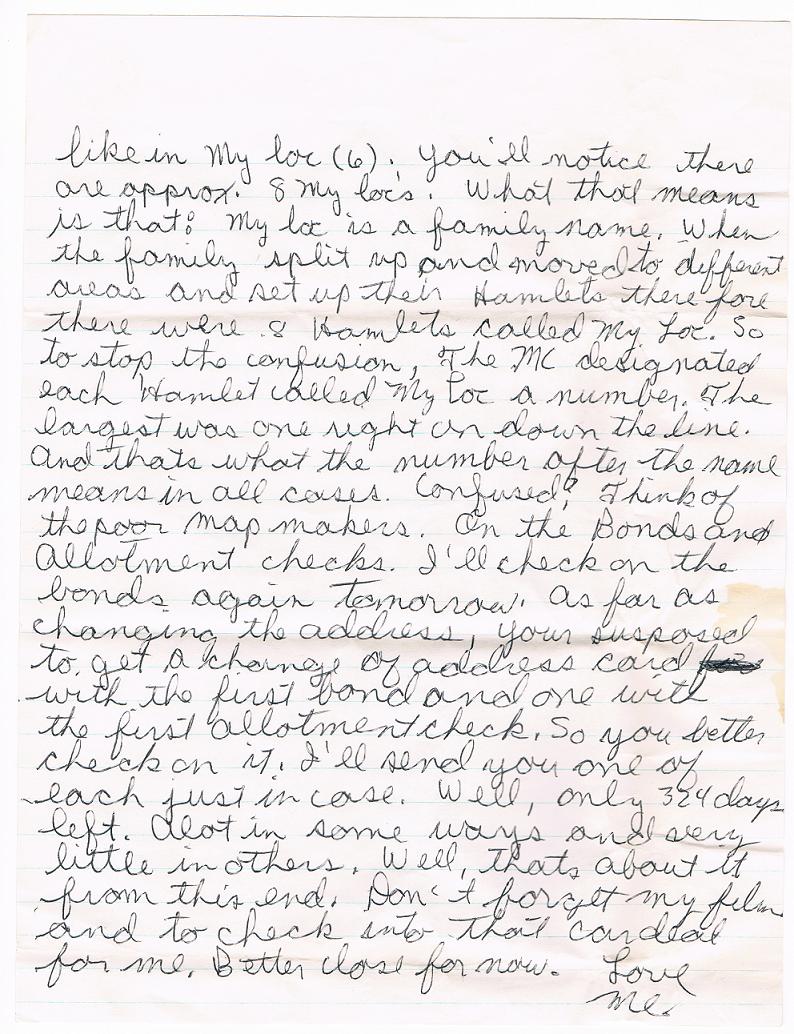 like in My loc (6). You'll notice there
are approx. 8 My loc's. What that means
is that: My loc is a family name. When
the family split up and moved to different
areas and set up their Hamlets there fore
there were 8 Hamlets called My Loc. So
to stop the confusion, The MC designated
each Hamlet called My Loc a number. The
largest was one right on down the line.
And thats what the number after the name
means in all cases. Confused? Think of
the poor map makers. On the Bonds and
Allotment checks. I'll check on the
bonds again tomorrow. As far as
changing the address, your susposed
to get a change of address card
with the first bond and one with
the first allotment check. So you better
check on it. I'll send you one of
each just in case. Well, only 324 days
left. Alot in some ways and very
little in others. Well, thats about it
from this end. Don't forget my film
and to check into that car deal
for me. Better close for now. Love
Me.